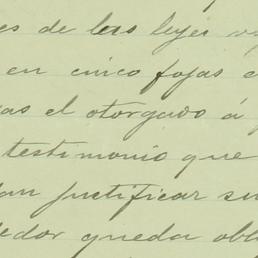 es de las leyes v
en cinco fojas e
as el otorgado á
testimonio que
dan justificar su
edor queda obl